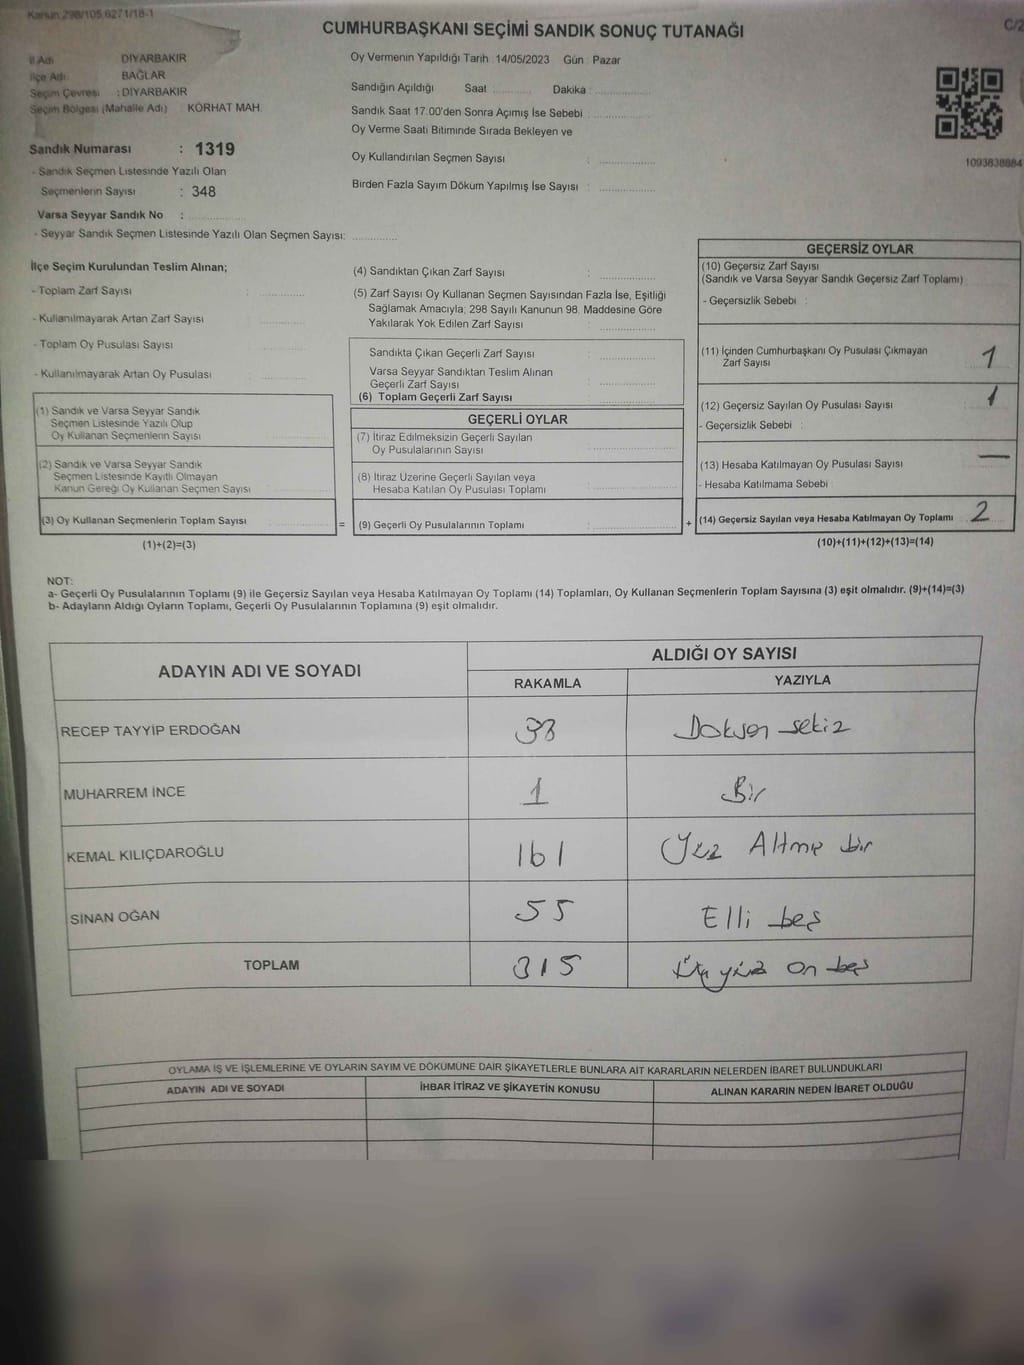 Kanun 298/105.6271/18-1
CUMHURBAŞKANI SEÇİMİ SANDIK SONUÇ TUTANAĞI
C/2
İl Adı DİYARBAKIR
İlçe Adı BAĞLAR
Seçim Çevresi : DİYARBAKIR
Seçim Bölgesi (Mahalle Adı) : KORHAT MAH.
Sandık Numarası : 1319
- Sandık Seçmen Listesinde Yazılı Olan
Seçmenlerin Sayısı : 348
Varsa Seyyar Sandık No :
- Seyyar Sandık Seçmen Listesinde Yazılı Olan Seçmen Sayısı:
Oy Vermenin Yapıldığı Tarih : 14/05/2023 Gün : Pazar
Sandığın Açıldığı Saat Dakika :
Sandık Saat 17:00'den Sonra Açımış İse Sebebi :
Oy Verme Saati Bitiminde Sırada Bekleyen ve
Oy Kullandırılan Seçmen Sayısı :
Birden Fazla Sayım Döküm Yapılmış İse Sayısı :
1093838884
İlçe Seçim Kurulundan Teslim Alınan;
- Toplam Zarf Sayısı :
- Kullanılmayarak Artan Zarf Sayısı
- Toplam Oy Pusulası Sayısı
- Kullanılmayarak Artan Oy Pusulası
(1) Sandık ve Varsa Seyyar Sandık
Seçmen Listesinde Yazılı Olup
Oy Kullanan Seçmenlerin Sayısı
(2) Sandık ve Varsa Seyyar Sandık
Seçmen Listesinde Kayıtlı Olmayan
Kanun Gereği Oy Kullanan Seçmen Sayısı
(3) Oy Kullanan Seçmenlerin Toplam Sayısı
=
(1)+(2)=(3)
(4) Sandıktan Çıkan Zarf Sayısı :
(5) Zarf Sayısı Oy Kullanan Seçmen Sayısından Fazla İse, Eşitliği
Sağlamak Amacıyla; 298 Sayılı Kanunun 98. Maddesine Göre
Yakılarak Yok Edilen Zarf Sayısı :
Sandıkta Çıkan Geçerli Zarf Sayısı :
Varsa Seyyar Sandıktan Teslim Alınan
Geçerli Zarf Sayısı :
(6) Toplam Geçerli Zarf Sayısı :
GEÇERLİ OYLAR
(7) İtiraz Edilmeksizin Geçerli Sayılan
Oy Pusulalarının Sayısı :
(8) İtiraz Üzerine Geçerli Sayılan veya
Hesaba Katılan Oy Pusulası Toplamı :
(9) Geçerli Oy Pusulalarının Toplamı :
+
GEÇERSİZ OYLAR
(10) Geçersiz Zarf Sayısı
(Sandık ve Varsa Seyyar Sandık Geçersiz Zarf Toplamı)
- Geçersizlik Sebebi :
(11) İçinden Cumhurbaşkanı Oy Pusulası Çıkmayan
Zarf Sayısı 1
(12) Geçersiz Sayılan Oy Pusulası Sayısı : 1
- Geçersizlik Sebebi :
(13) Hesaba Katılmayan Oy Pusulası Sayısı —
- Hesaba Katılmama Sebebi
(14) Geçersiz Sayılan veya Hesaba Katılmayan Oy Toplamı 2
(10)+(11)+(12)+(13)=(14)
NOT:
a- Geçerli Oy Pusulalarının Toplamı (9) ile Geçersiz Sayılan veya Hesaba Katılmayan Oy Toplamı (14) Toplamları, Oy Kullanan Seçmenlerin Toplam Sayısına (3) eşit olmalıdır. (9)+(14)=(3)
b- Adayların Aldığı Oyların Toplamı, Geçerli Oy Pusulalarının Toplamına (9) eşit olmalıdır.
ADAYIN ADI VE SOYADI ALDIĞI OY SAYISI
RAKAMLA YAZIYLA
RECEP TAYYİP ERDOĞAN 98 Doksan sekiz
MUHARREM İNCE 1 Bir
KEMAL KILIÇDAROĞLU 161 Yüz Altmış bir
SİNAN OĞAN 55 Elli beş
TOPLAM 315 Üçyüz on beş
OYLAMA İŞ VE İŞLEMLERİNE VE OYLARIN SAYIM VE DÖKÜMÜNE DAİR ŞİKAYETLERLE BUNLARA AİT KARARLARIN NELERDEN İBARET BULUNDUKLARI
ADAYIN ADI VE SOYADI İHBAR İTİRAZ VE ŞİKAYETİN KONUSU ALINAN KARARIN NEDEN İBARET OLDUĞU